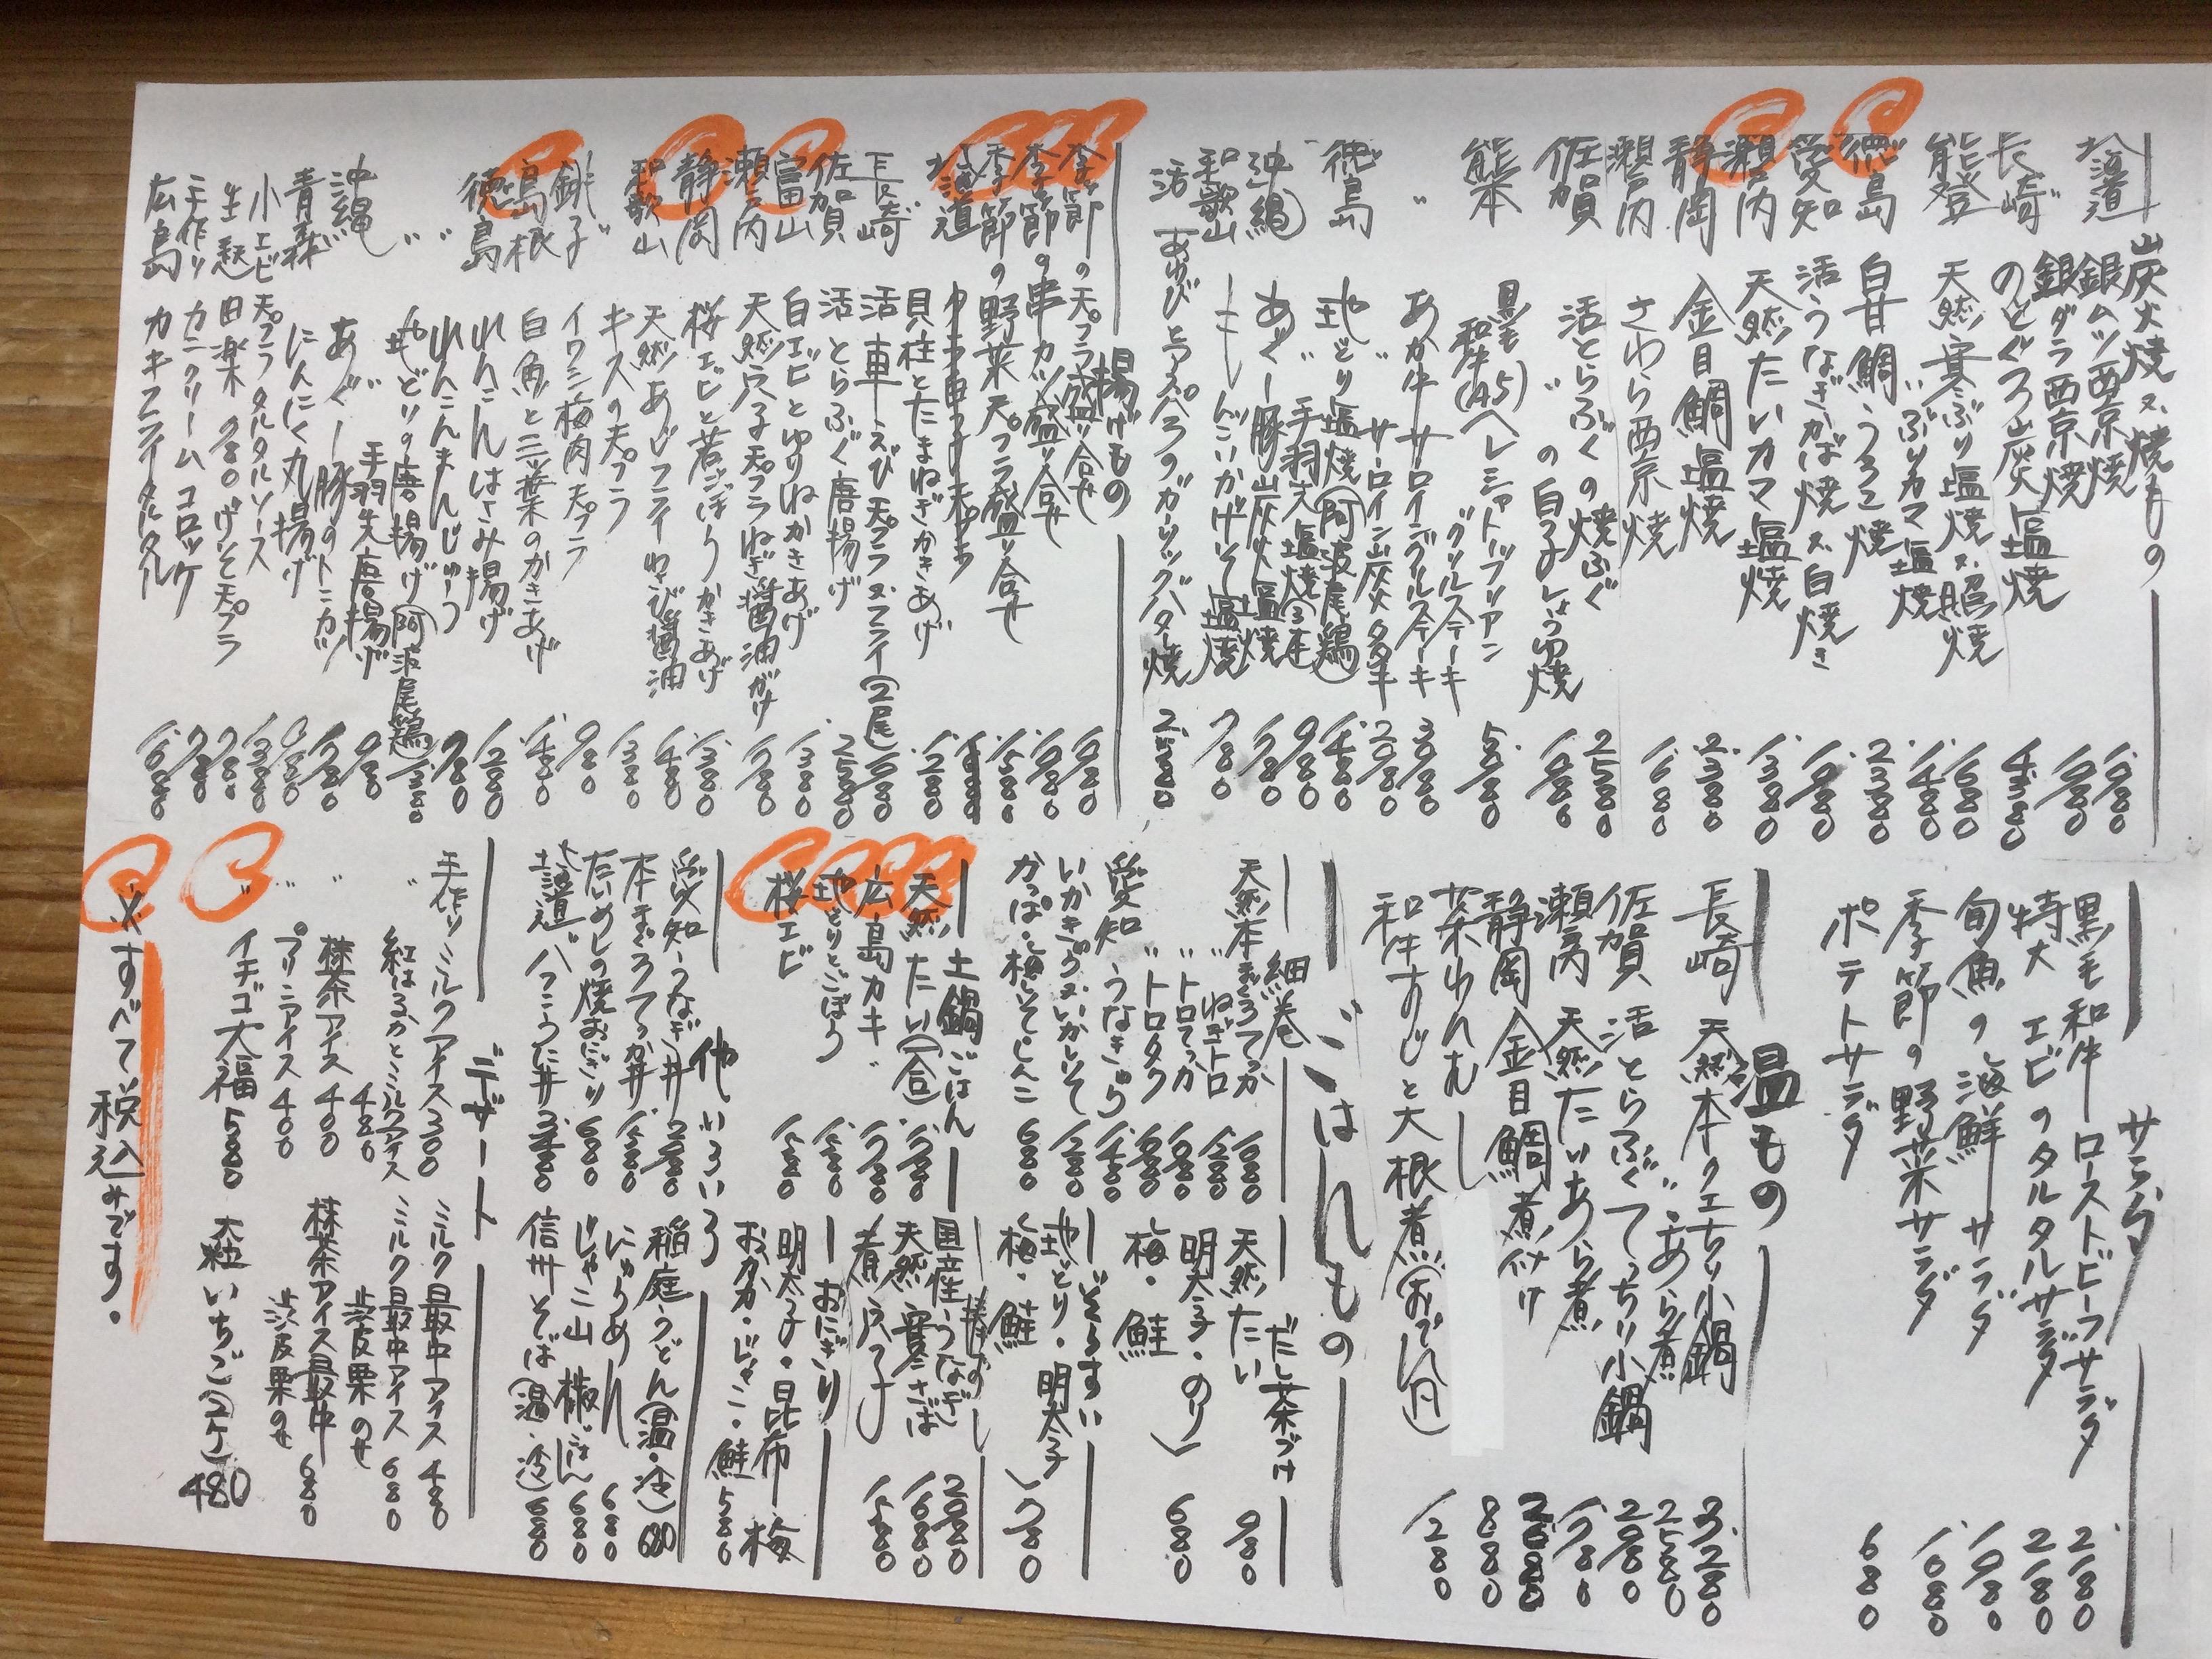 炭火焼又焼もの
北海道 銀ムツ西京焼 1,980
銀ダラ西京焼 1,980
長崎 のどぐろ炭塩焼 4,380
能登 天然寒ぶり塩焼又照焼 1,680
〃 ぶりカマ塩焼 1,480
徳島 白甘鯛うろこ焼 2,380
愛知 活うなぎかば焼又白焼き 1,980
瀬戸内 天然たいカマ塩焼 1,380
静岡 金目鯛塩焼 2,380
瀬戸内 さわら西京焼 1,680
佐賀 活とらふぐの焼ふぐ 2,580
〃の白子しょうゆ焼 1,980
黒毛和牛(A5)ヘレシャトーブリアン
グリルステーキ 5,880
熊本 あか牛サーロイングリルステーキ 3,980
〃 〃 サーロイン炭タタキ 2,980
徳島 地どり塩焼(阿波尾鶏) 1,480
〃 手羽先塩焼(3連) 980
沖縄 あぐー豚炭火塩焼 1,780
和歌山 しんこいかげそ塩焼 780
活あわびとアスパラのガーリックバター焼 2,580
揚げもの
季節の天プラ盛り合せ 1,980
季節の串カツ盛り合せ 1,980
季節の野菜天プラ盛り合せ 1,580
北海道
貝柱とたまねぎかきあげ 1,280
長崎 活車えび天プラ又フライ(2尾)
佐賀 活とらふぐ唐揚げ 2,580
富山 白エビとゆりねかきあげ 1,380
瀬戸内 天然穴子天プラねぎ醤油がけ 1,780
静岡 桜エビと若ごぼうかきあげ 1,380
和歌山 天然あじフライわさび醤油 1,480
キスの天プラ 1,380
銚子 イワシ梅肉天プラ 980
島根 白魚と三つ葉のかきあげ 1,480
徳島 れんこんはさみ揚げ 1,280
〃 れんこんまんじゅう 980
〃 地どりの唐揚げ(阿波尾鶏) 1,380
〃 手羽先唐揚げ 980
沖縄 あぐー豚のトンカツ 1,780
青森 にんにく丸揚げ
小エビ天プラタルタルソース 1,380
生麩田楽 980 げそ天プラ 780
手作りカニクリームコロッケ
広島 カキフライタルタル 1,680
サラダ
黒毛和牛ローストビーフサラダ 2,180
特大エビのタルタルサラダ 2,180
旬魚の海鮮サラダ 1,980
季節の野菜サラダ 1,080
ポテトサラダ 680
温もの
長崎 天然本クエちり小鍋 3,280
〃 あら煮 2,580
佐賀 活とらふぐてっちり小鍋 2,980
瀬戸内 天然たいあら煮 1,780
静岡 金目鯛煮付け
茶わんむし 880
和牛すじと大根煮(おでん風) 1,280
ごはんもの
細巻
天然本まぐろてっか
〃 ねぎトロ
〃 トロてっか 1,980
〃 トロタク
愛知 うなきゅう 1,480
いかきゅう又いかしそ 1,280
かっぱ・梅しそ・しんこ 680
だし茶づけ
天然たい 980
明太子・のり
梅・鮭
680
ぞうすい
地どり・明太子
梅・鮭
1,780
土鍋ごはん
天然たい(一合) 1,780
広島カキ〃 1,780
地どりとごぼう 1,580
桜エビ 1,580
棒ずし
国産うなぎ 2,980
天然寒さば 1,680
煮穴子 1,580
おにぎり
明太子・昆布・梅
おかか・じゃこ・鮭 580
他いろいろ
愛知 うなぎ丼
本まぐろてっか丼
たいめしの焼おにぎり 680
北海道 バフンうに丼
稲庭うどん(温・冷) 680
にゅうめん 680
じゃこ山椒ごはん 680
信州そば(温・冷) 680
デザート
手作りミルクアイス 300
〃 紅はるかとミルクアイス 480
〃 抹茶アイス 400
〃 プリンアイス 400
〃 イチゴ大福 580
ミルク最中アイス 480
ミルク最中アイス
渋皮栗のせ 680
抹茶アイス最中
渋皮栗のせ 680
大粒いちご(2ケ) 480
※すべて税込みです。